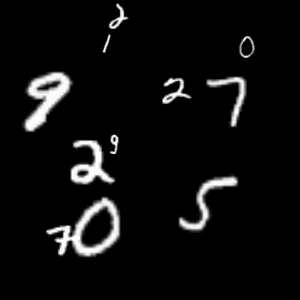 2
1 0
9 2 7
2 9
7 0 5